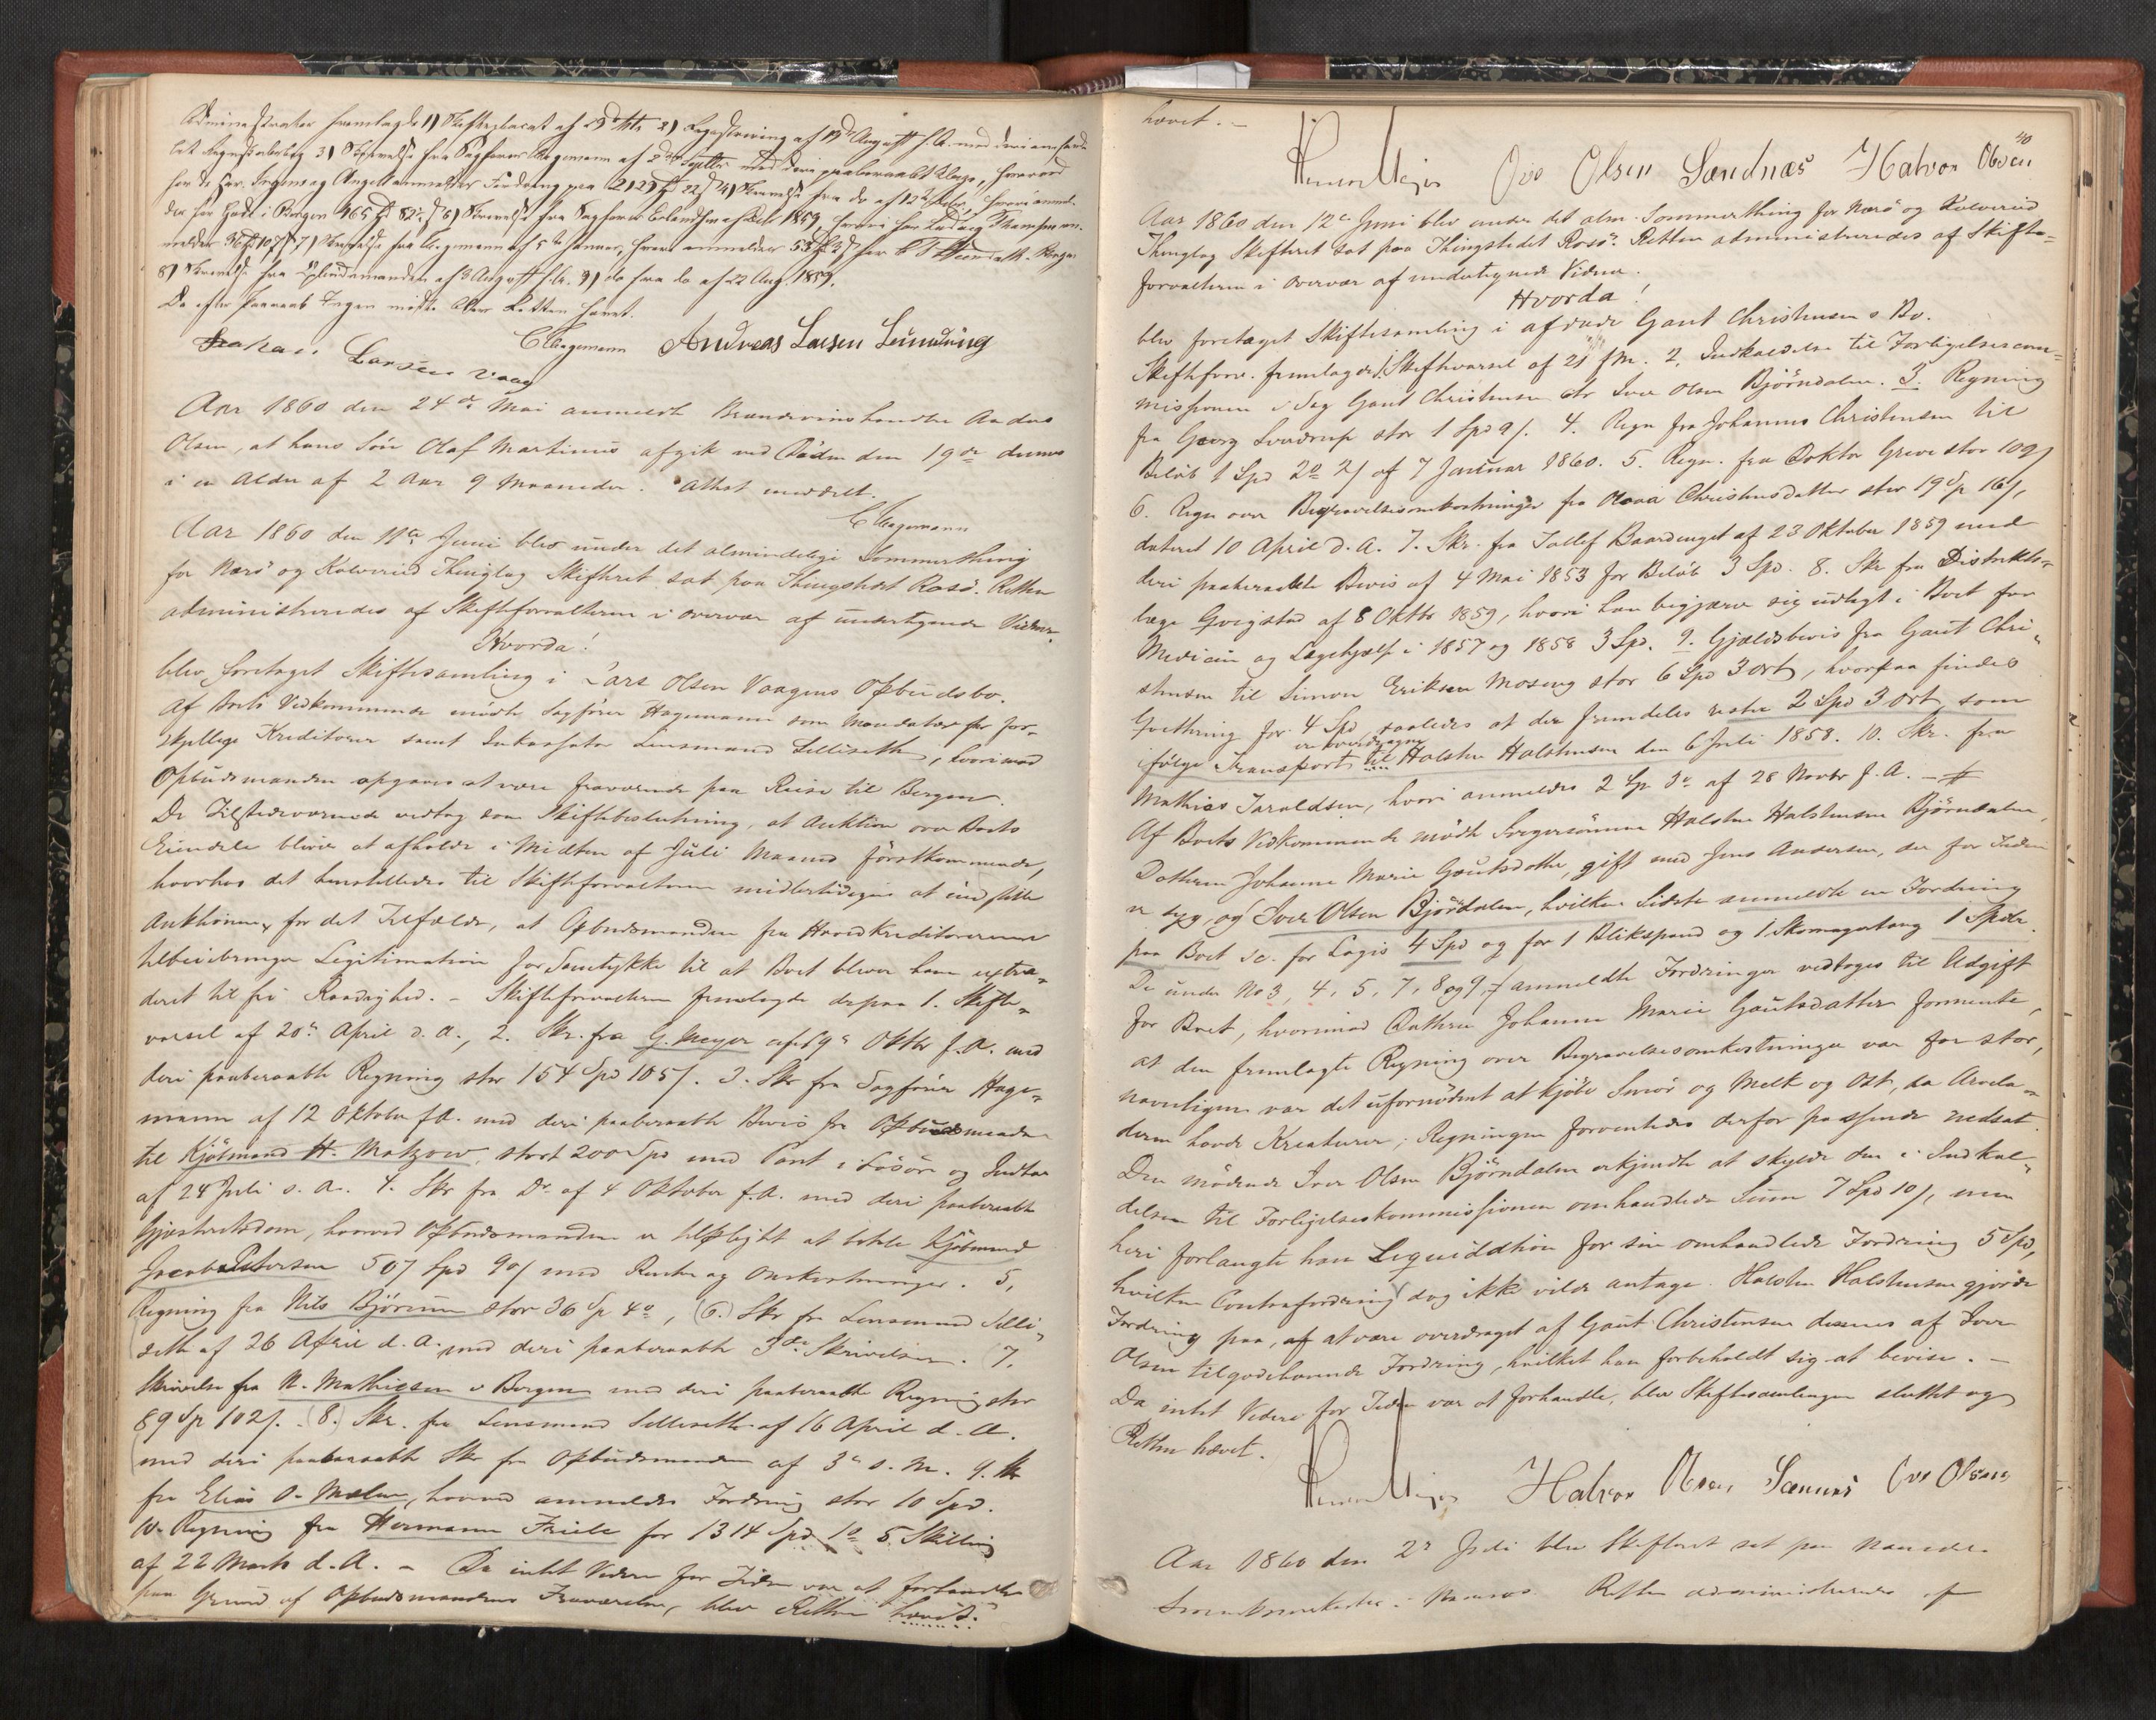 Administrator fremlagde 1) Skifteplacat af 25de 2) Registrering af 13de August f.A. med deri anført
let Regnskabsbog 3) Skrivelse fra Sagfører Hagemann af med deri paaberaabt Klage, hvorved
for de Her. Angell anmeldes Fordring paa 2125 22 4) Skrivelse fra do af 12te hvori anmel-
des for i Bergen 465 82 6) Skrivelse fra Sagfører af 1859, hvori for Ludvig an-
meldes 36 107 7) Skrivelse fra Hagemann af 5te Januar, hvori anmeldes 53 for Bergen
8) Skrivelse fra af 3 August f.A. 9) do fra do af 22 Aug. 1859.
Da efter Paaraab Ingen mødte blev Retten hævet.
CHagemann Andreas Larsen
Larsen Vaag
Aar 1860 den 24de Mai anmeldte Brændevinshandler
Olsen, at hans Søn Olaf Martinus afgik ved Døden den 19de dennes
i en Alder af 2 Aar 9 Maaneder. Attest meddelt.
CHagemann
Aar 1860 den 11te Juni blev under det almindelige Sommerthing
for Nærö og Kolvereid Thinglag Skifteret sat paa Thingstedet Rosö. Retten
administreredes af Skifteforvalteren i overvær af undertegnede Vidner.
Hvorda!
blev foretaget Skiftesamling i Lars Olsen Vaagens Opbudsbo.
Af Boets Vedkommende mødte Sagfører Hagemann som Mandatar for for-
skjellige Kreditorer samt Inkassator Lensmand Selliseth, hvorimod
Opbudsmanden opgaves at være fraværende paa Reise til Bergen.
De Tilstedeværende vedtog som Skiftebeslutning, at Auktion over Boets
Eiendele bliver at afholde i Midten af Juli Maaned førstkommende,
hvorhos det henstilledes til Skifteforvalteren midlertidigen at indstille
Auktionen, for det Tilfælde, at Opbudsmanden fra Hovedkreditorerne
tilveiebringer Legitimation for Samtykke til at Boet bliver ham extra-
deret til fri Raadighed. - Skifteforvalteren fremlagde derpaa 1. Skifte-
varsel af 20de April d. A., 2. Skr. fra G. Meyer af 19de Oktbr f. A. med
deri paaberaabte Regning stor 154 Spd 105/. 3. Skr fra Sagfører Hage-
mann af 12 Oktober f.A. med deri paaberaabte Bevis fra Opbudsmanden
til Kjøbmand H. Matzow, stort 200 Spd med Pant i Løsøre og Indbo
af 24 Juli s. A. 4. Skr fra Do af 4 Oktober f.A. med deri paaberaabte
Gjæsteretsdom, hvorved Opbudsmanden er tilpligtet at betale Kjøbmand
Jacob Petersen 507 Spd 90/ med Renter og Omkostninger. 5,
Regning fra Nils Björum stor 36 Sp 4o, (6.) Skr fra Lensmand Selli-
seth af 26 April d. A. med deri paaberaabte 3de Skrivelser. (7.
Skrivelse fra N. Mathiesen i Bergen med deri paaberaabte Regning stor
89 Sp 102/. (8.) Skr. fra Lensmand Selliseth af 16 April d. A.
med deri paaberaabte Skr fra Opbudsmanden af 3de s. M. 9. Skr
fra Elias O. Melen, hvorved anmeldes Fordring stor 10 Spd.
10. Regning fra Hermann Friele for 1314 Spd 1o 5 Skilling
af 22 Marts d. A. - Da intet Videre for Tiden var at forhandle
paa Grund af Opbudsmandens Fraværelse, blev Retten hævet.
hævet. -
40
Ove Olsen Sændnæs Halvor Olsen
Aar 1860 den 12te Juni blev under det alm. Sommerthing for Nærö og Kolvereid
Thinglag Skifteret sat paa Thingstedet Rosö. Retten administreredes af Skifte-
forvalteren i overvær af undertegnede Vidner.
Hvorda!
blev foretaget Skiftesamling i afdøde Gaut Christensens Bo.
Skifteforv. fremlagde 1. Skiftevarsel af 21 f.M. 2. Indkaldelse til Forligelsescom-
missionen i Sag Gaut Christensen ctr Iver Olsen Björndalen. 3. Regning
fra Georg Sverdrup stor 1 Spd 9/. 4. Regn fra Johannes Christensen til
Beløb 1 Spd 2o 2/ af 7 Januar 1860. 5. Regn. fra Doktor Greve stor 109/
6. Regn over Begravelsesomkostninger fra Christensdatter stor 19 Sp 16/,
dateret 10 April d. A. 7. Skr. fra Tollef Baardenget af 23 Oktober 1859 med
deri paaberaabte Bevis af 4 Mai 1853 for Beløb 3 Spd. 8. Skr fra Distrikts-
læge Qvigstad af 8 Oktbr 1859, hvori han begjærer sig udlagt i Boet for
Medicin og Lægehjælp i 1857 og 1858 3 Spd. 9. Gjældsbevis fra Gaut Chri-
stensen til Simon Eriksen Moseng stor 6 Spd 3 Ort, hvorpaa findes
Qvittering for 4 Spd saaledes at der fremdeles rester 2 Spd 3 Ort, som
er overdragen
ifølge Transport til Halsten Halstensen den 6 Juli 1858. 10. Skr. fra
Mathias Taraldsen, hvori anmeldes 2 Sp 3o af 28 Novbr f. A. -
Af Boets Vedkommende mødte Svigersønnen Halsten Halstensen Björndalen,
Datteren Johanne Marie Gautsdatter, gift med Jens Andersen, der for Tiden
er syg, og Iver Olsen Björdalen, hvilken Sidste anmeldte en Fordring
paa Boet sc. for Logis 4 Spd og for 1 Blikspand og 1 Skomagertang 1 Spdlr.
De under No 3, 4, 5, 7, 8 og 9, anmeldte Fordringer vedtoges til Udgift
for Boet, hvorimod Datteren Johanne Marie Gautsdatter formente,
at den fremlagte Regning over Begravelsesomkostninger var for stor,
navnligen var det ufornødent at kjøbe Smör og Melk og Ost, da Arvela-
deren havde Kreaturer; Regningen forventedes derfor passende nedsat.
Den mødende Iver Olsen Björndalen erkjendte at skylde den i Indkal-
delsen til Forligelseskommissionen omhandlede Sum 7 Spd 10/, men
heri forlangte han Liquidation for sin omhandlede Fordring 5 Spd,
hvilken Contrafordring dog ikke vilde antage. Halsten Halstensen gjorde
Fordring paa, af at være overdraget af Gaut Christensen dennes af Iver
Olsen tilgodehavende Fordring, hvilket han forbeholdt sig at bevise. -
Da intet Videre for Tiden var at forhandle, blev Skiftesamlingen sluttet og
Retten hævet.
Halvor Olsen Sænnes Ove Olsen
Aar 1860 den 2de Juli blev Skifteret sat paa
i Namsos. Retten administreredes af